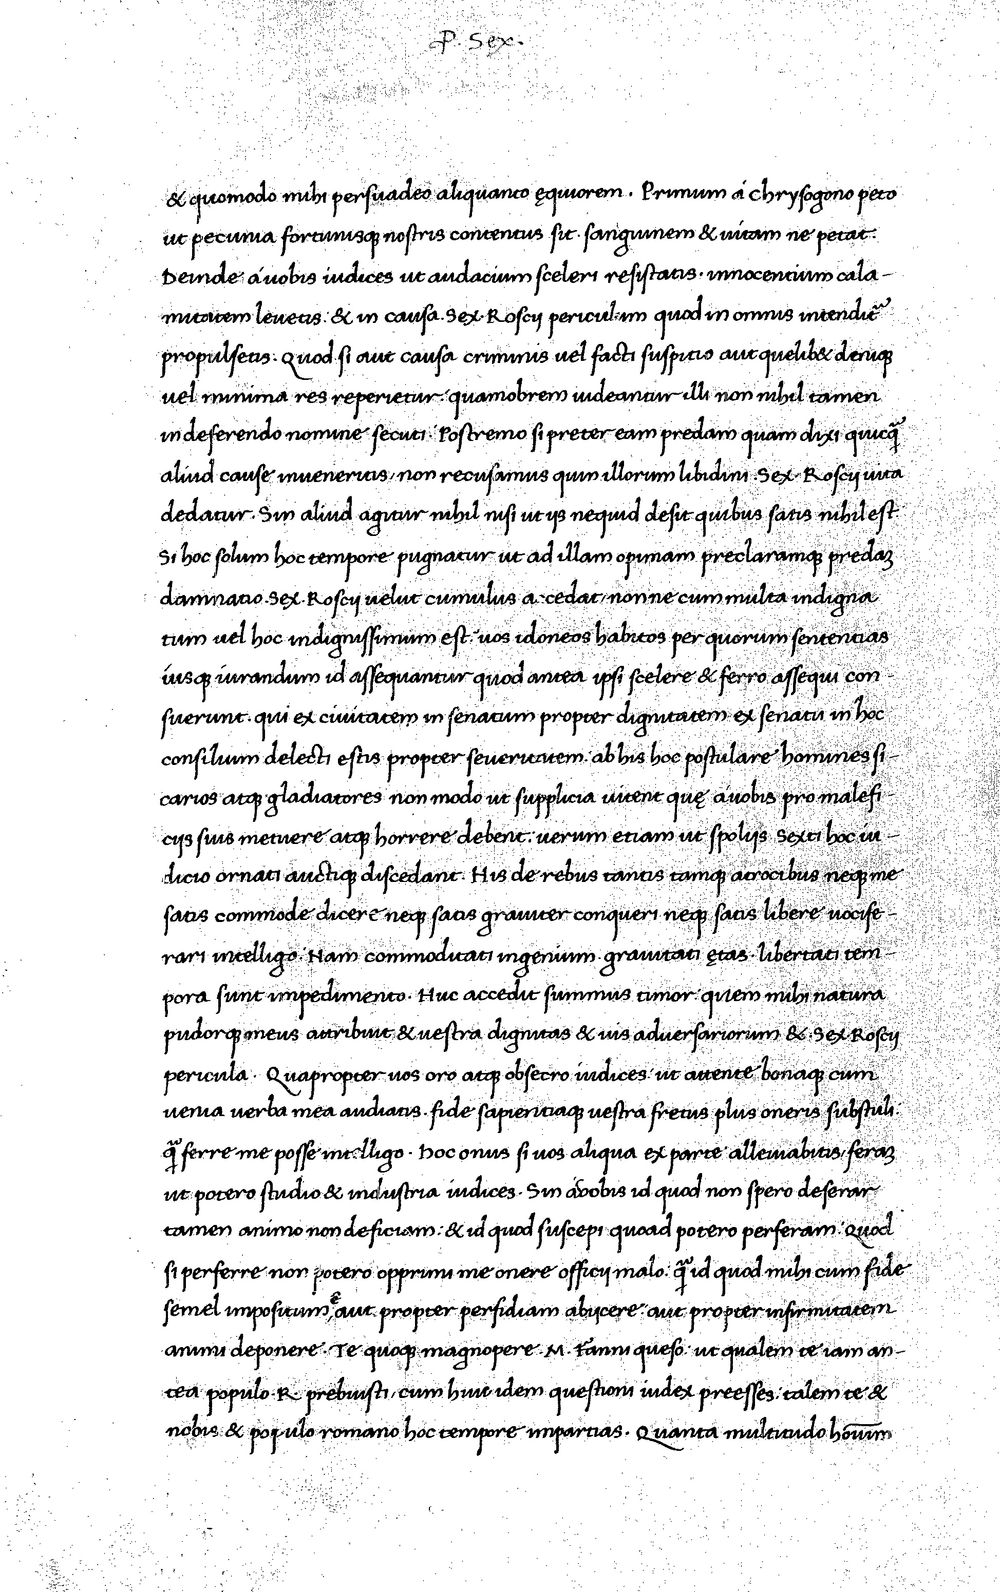 P. Sex.
& quomodo mihi persuadeo aliquanto ęquiorem. Primum á Chrysogono peto
ut pecunia fortunisq; nostris contentus sit. sanguinem & uitam ne petat.
Deinde á uobis iudices ut audacium sceleri resistatis. innocentium cala-
mitatem leuetis. & in causa Sex. Roscij periculum quod in omnis intendit̃
propulsetis. Quod si aut causa criminis uel facti suspitio aut quelib& deniq;
uel minima res reperietur. quamobrem uideantur illi non nihil tamen
in deferendo nomine secuti. Postremo si preter eam predam quam dixi quicq̃
aliud cause inueneritis, non recusamus quin illorum libidini Sex. Roscij uita
dedatur. Sin aliud agitur nihil nisi ut ijs nequid desit quibus satis nihil est.
Si hoc solum hoc tempore pugnatur ut ad illam opimam preclaramq; predaʒ
damnatio Sex. Roscij uelut cumulus accedat, nonne cum multa indigna
tum uel hoc indignissimum est. uos idoneos habitos per quorum sententias
iusq; iurandum id assequantur quod antea ipsi scelere & ferro assequi con-
suerunt. qui ex ciuitatem in senatum propter dignitatem ex senatu in hoc
consilium delecti estis propter seueritatem. ab his hoc postulare homines si-
carios atq; gladiatores non modo ut supplicia uitent quę á uobis pro malefi-
cijs suis metuere atq; horrere debent. uerum etiam ut spolijs Sexti hoc iu-
dicio ornati auctiq; discedant. His de rebus tantis tamq; atrocibus neq; me
satis commode dicere neq; satis grauiter conqueri neq; satis libere uocife-
rari intelligo. Nam commoditati ingenium. grauitati ętas. libertati tem-
pora sunt impedimento. Huc accedit summus timor. quem mihi natura
pudorq; meus attribuit & uestra dignitas & uis aduersariorum & Sex Roscij
pericula. Quapropter uos oro atq; obsecro iudices ut attente bonaq; cum
uenia uerba mea audiatis. fide sapientiaq; uestra fretus plus oneris substuli
q̃ ferre me posse intelligo. Hoc onus si uos aliqua ex parte alleuiabitis, feraʒ
ut potero studio & industria iudices. Sin á uobis id quod non spero deserar
tamen animo non deficiam. & id quod suscepi quoad potero perferam. Quod
si perferre non potero opprimi me onere officij malo. q̃ id quod mihi cum fide
semel impositum ẽ aut propter perfidiam abijcere aut propter infirmitatem
animi deponere. Te quoq; magnopere M. Fanni queso. ut qualem te iam an-
tea populo R. prebuisti, cum huic idem questioni iudex preesses. talem te &
nobis & populo romano hoc tempore impartias. Quanta multitudo hominũ